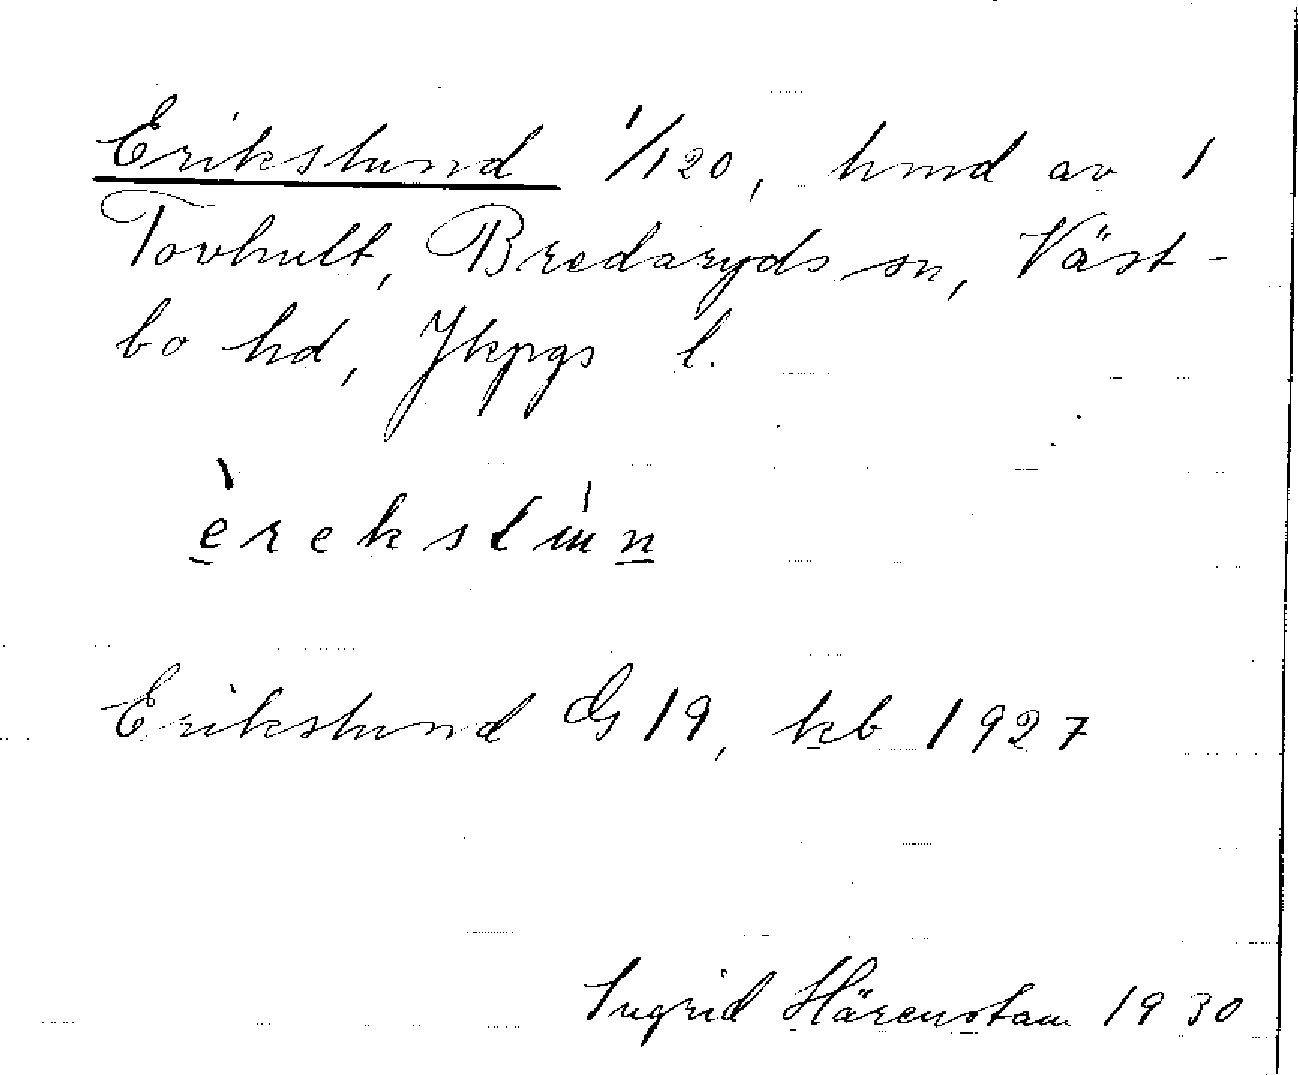 Erikslund 1/120, hmd av 1
Tovhult, Bredaryds sn, Väst-
bo hd, Jkpgs l.
Erikslund G 19, kb 1927
Ingrid Härenstam 1930